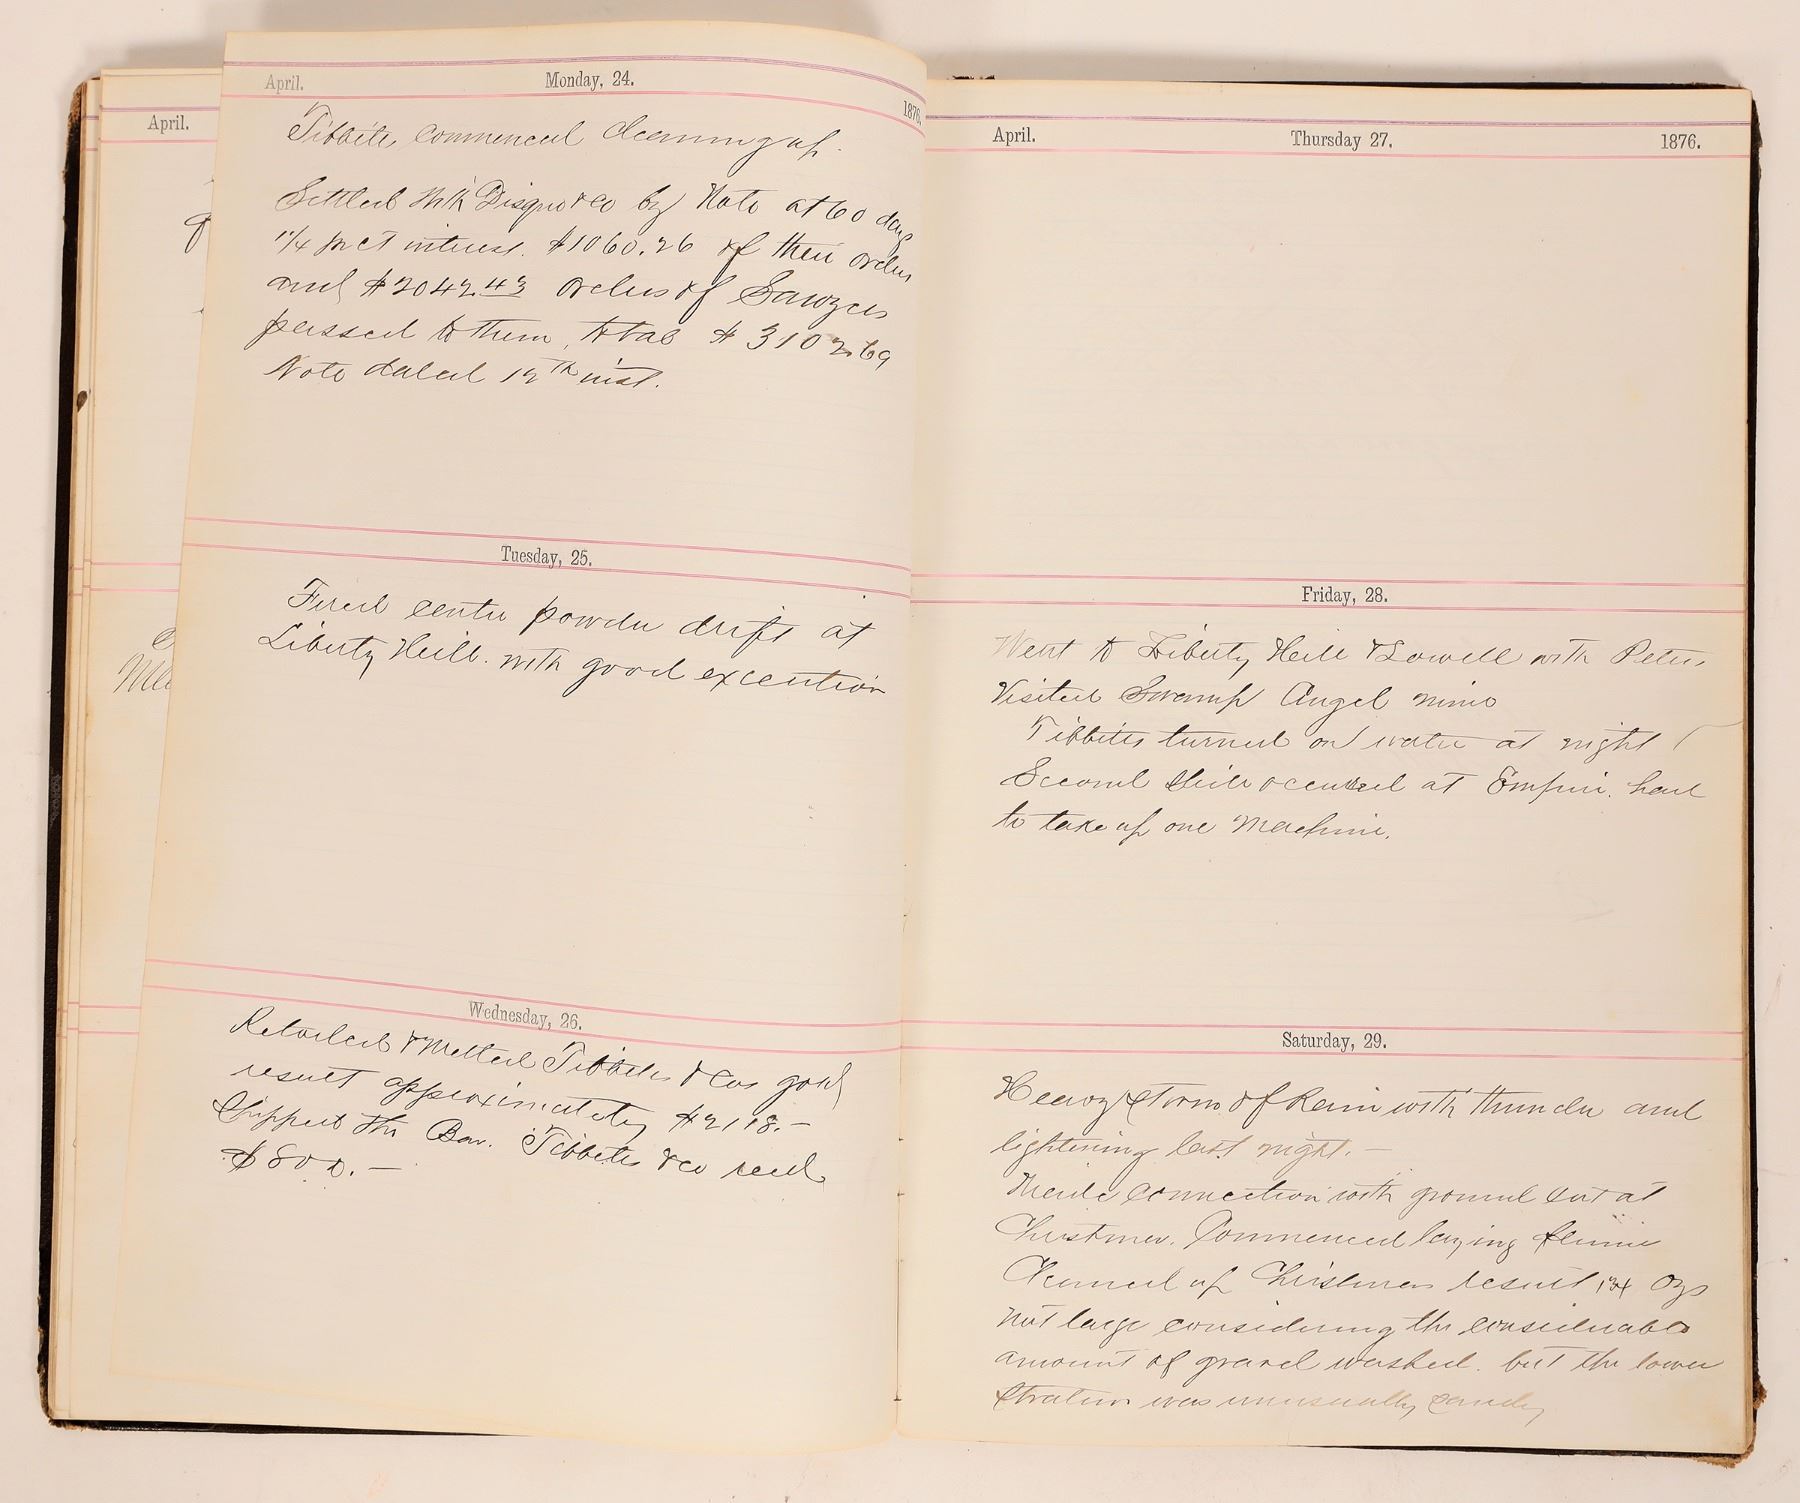 April.
April. Monday, 24. 1876.
Tibbits commenced cleaning up.
Settled with Disque & co by Note at 60 days
1¼ pr ct interest. $1060.26 of their orders
and $2042.43 orders of Sawyers
passed to them, total $3102.69
Note dated 12th inst.
Tuesday, 25.
Fired center powder drift at
Liberty Hill. with good execution
Wednesday, 26.
Retorted & Melted Tibbits & Cos gold
result approximately $2118.—
Shipped the Bar. Tibbits & co recd
$800.—
April. Thursday 27. 1876.
Friday, 28.
Went to Liberty Hill & Lowell with Peters
Visited Swamp Angel mine
Tibbits turned on water at night
Second slide occurred at Empire. had
to take up one Machine.
Saturday, 29.
Heavy storm of Rain with thunder and
lightening last night.—
Made connection with ground cut at
Christmas. Commenced laying flume
Cleaned up Christmas result 134 Ozs
not large considering the considerable
amount of gravel washed. but the lower
stratum was unusually sandy